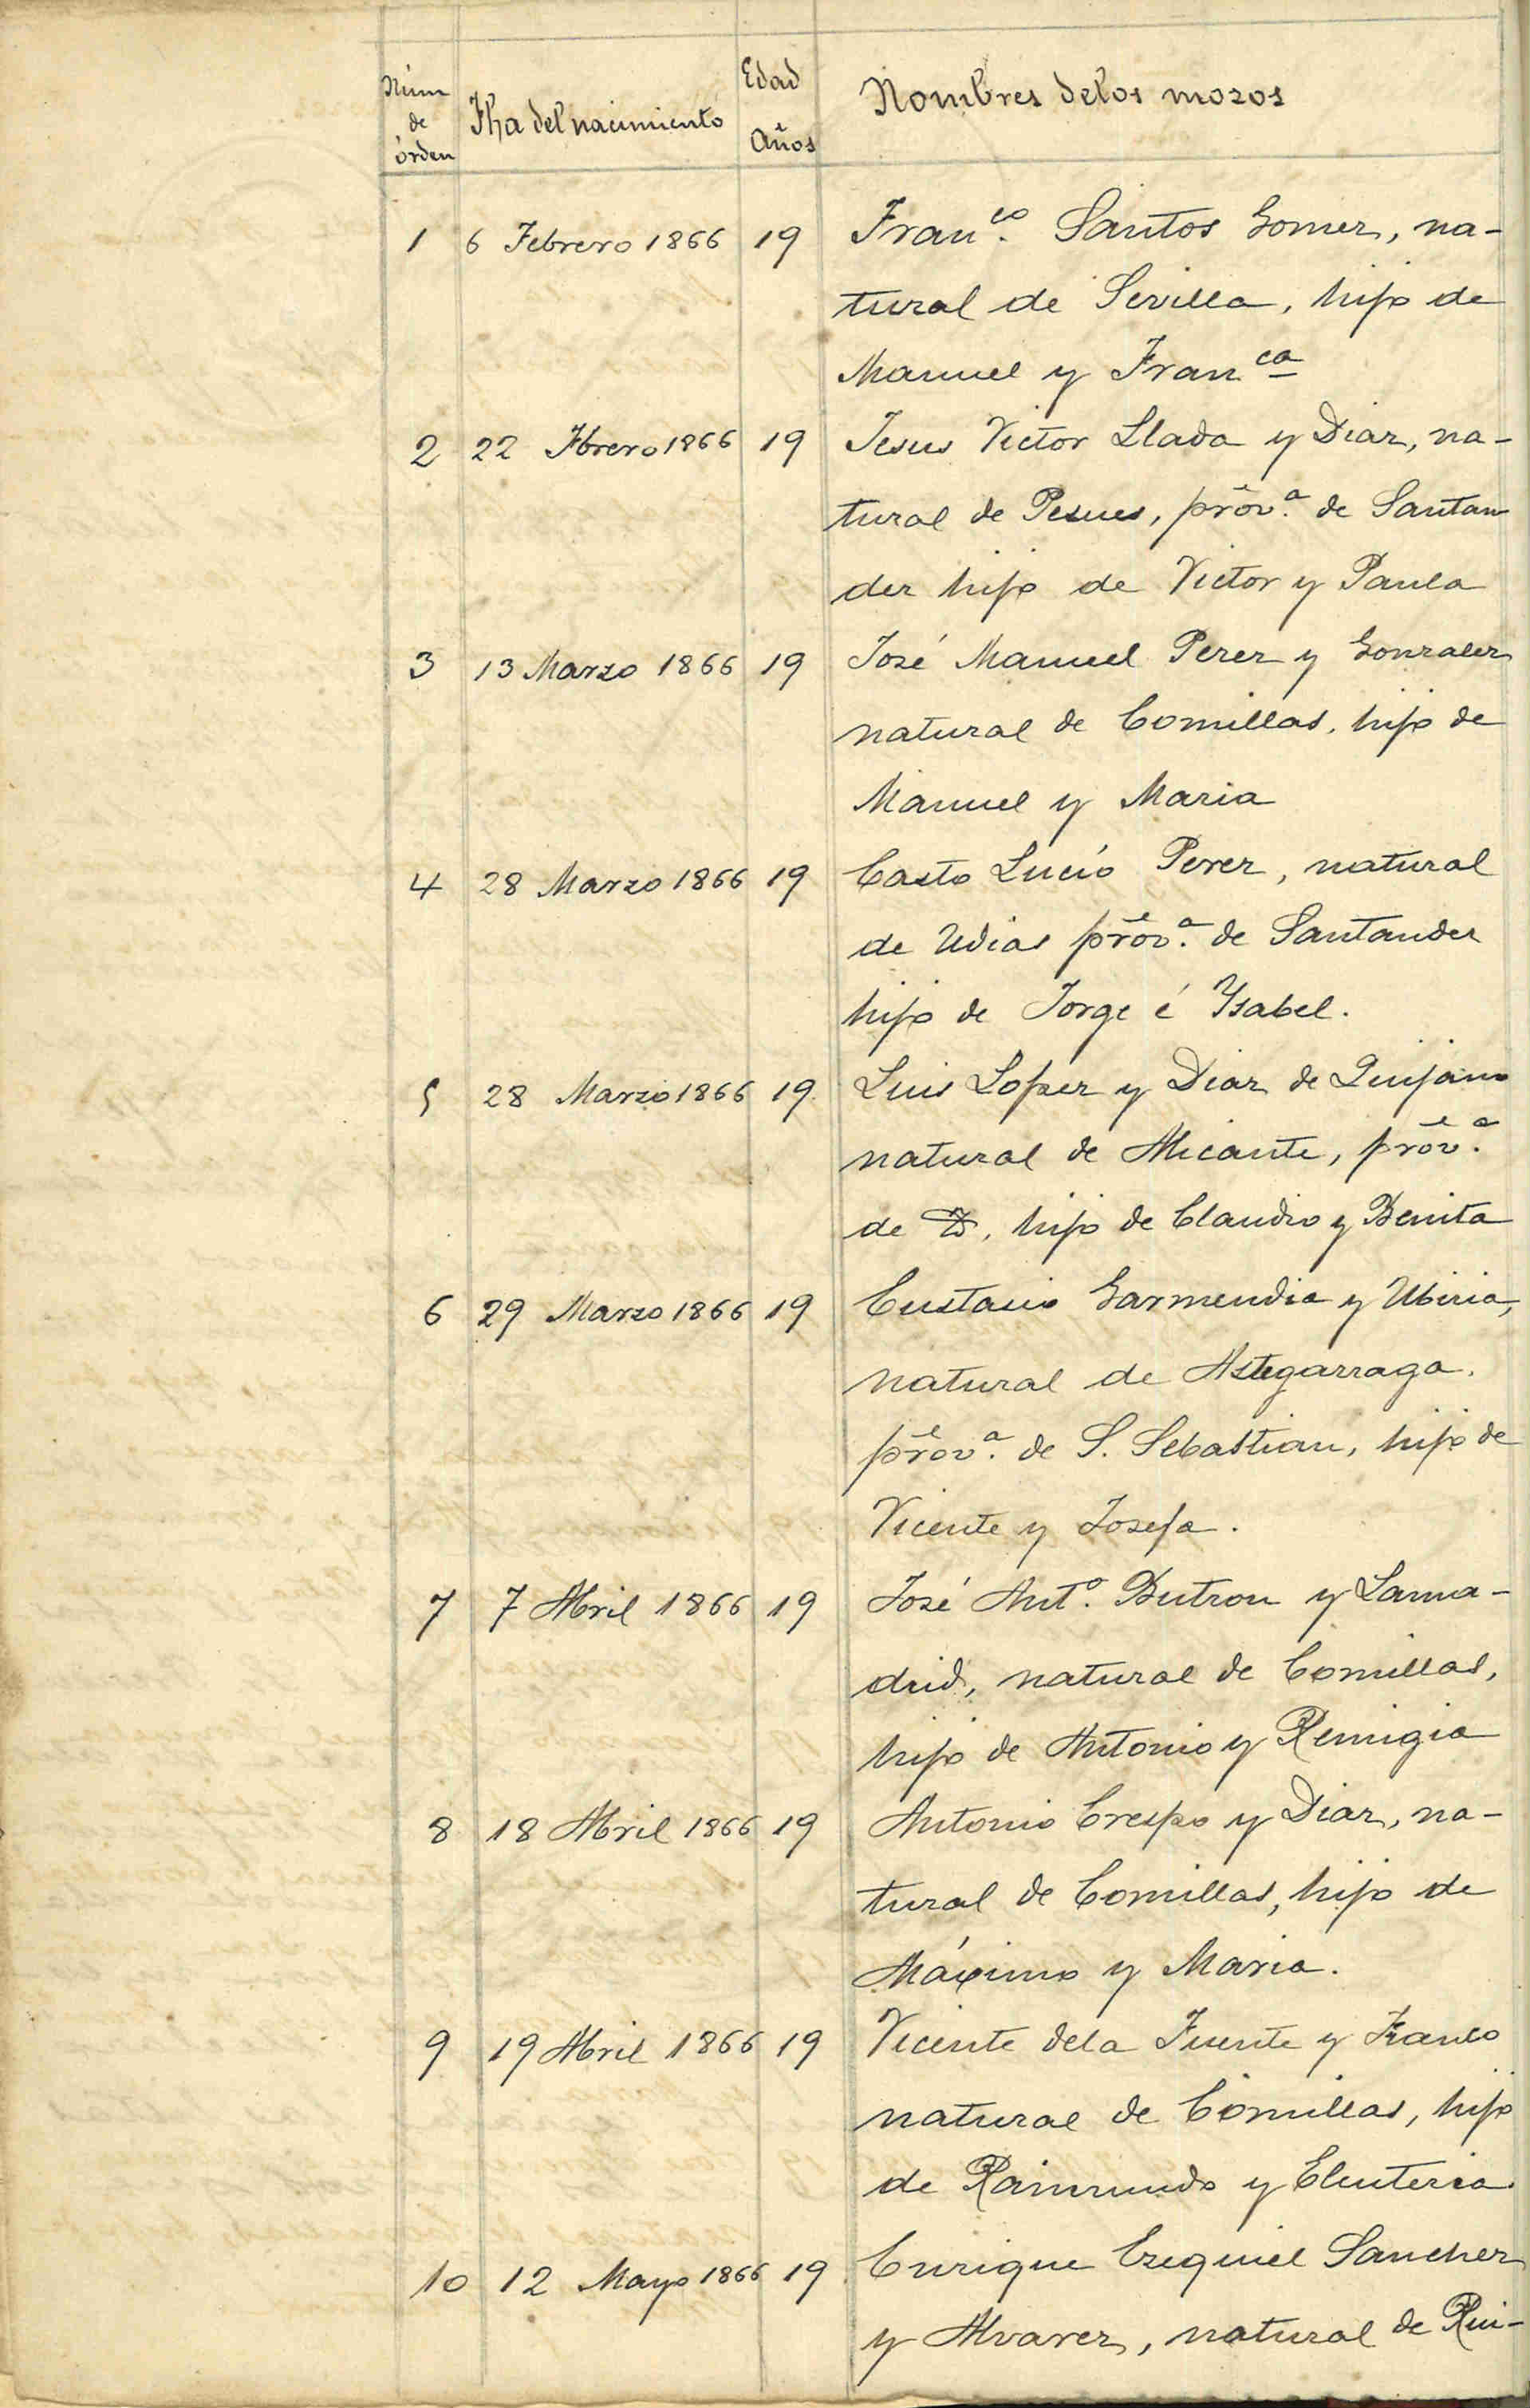 Núm de órden Fha del nacimiento Edad Años Nombres delos mozos
1 6 Febrero 1866 19 Fran.co Santos Gomez, na-
tural de Sevilla, hijo de
Manuel y Fran.ca
2 22 Fbrero 1866 19 Jesus Victor Llada y Diaz, na-
tural de Pesues, prov.a de Santan
der hijo de Victor y Paula
3 13 Marzo 1866 19 José Manuel Perez y Gonzalez
natural de Comillas, hijo de
Manuel y Maria
4 28 Marzo 1866 19 Casto Lucio Perez, natural
de Udias prov.a de Santander
hijo de Jorge é Ysabel.
5 28 Marzo 1866 19 Luis Lopez y Diaz de Quijano
natural de Alicante, prov.a
de Id, hijo de Claudio y Benita
6 29 Marzo 1866 19 Eustasio Garmendia y Ubiria,
natural de Astegarraga.
prov.a de S. Sebastian, hijo de
Vicente y Josefa.
7 7 Abril 1866 19 José Ant.o Butron y Lama-
drid, natural de Comillas,
hijo de Antonio y Remigia
8 18 Abril 1866 19 Antonio Crespo y Diaz, na-
tural de Comillas, hijo de
Máximo y Maria.
9 19 Abril 1866 19 Vicente dela Fuente y Franco
natural de Comillas, hijo
de Raimundo y Eleuteria
10 12 Mayo 1866 19 Enrique Ezequiel Sanchez
y Alvarez, natural de Rui-